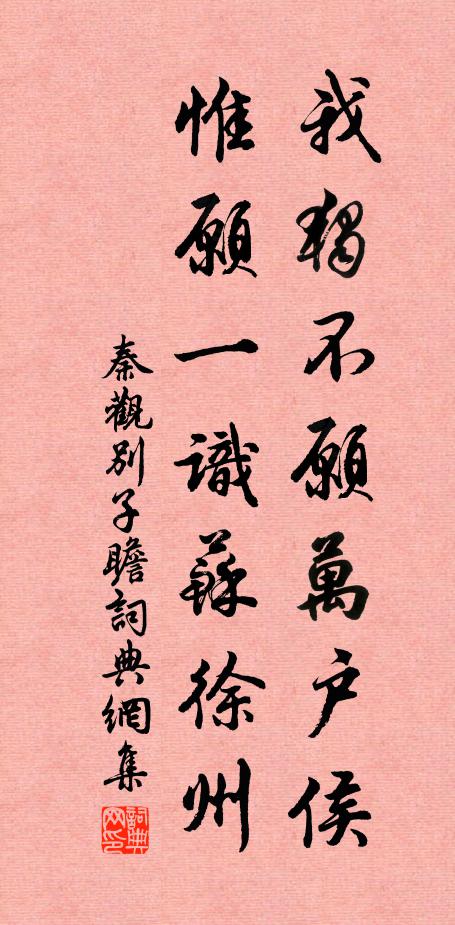 我獨不願萬户侯
惟願一識蘇徐州
秦觀別子瞻詞典網集
詞典
网印